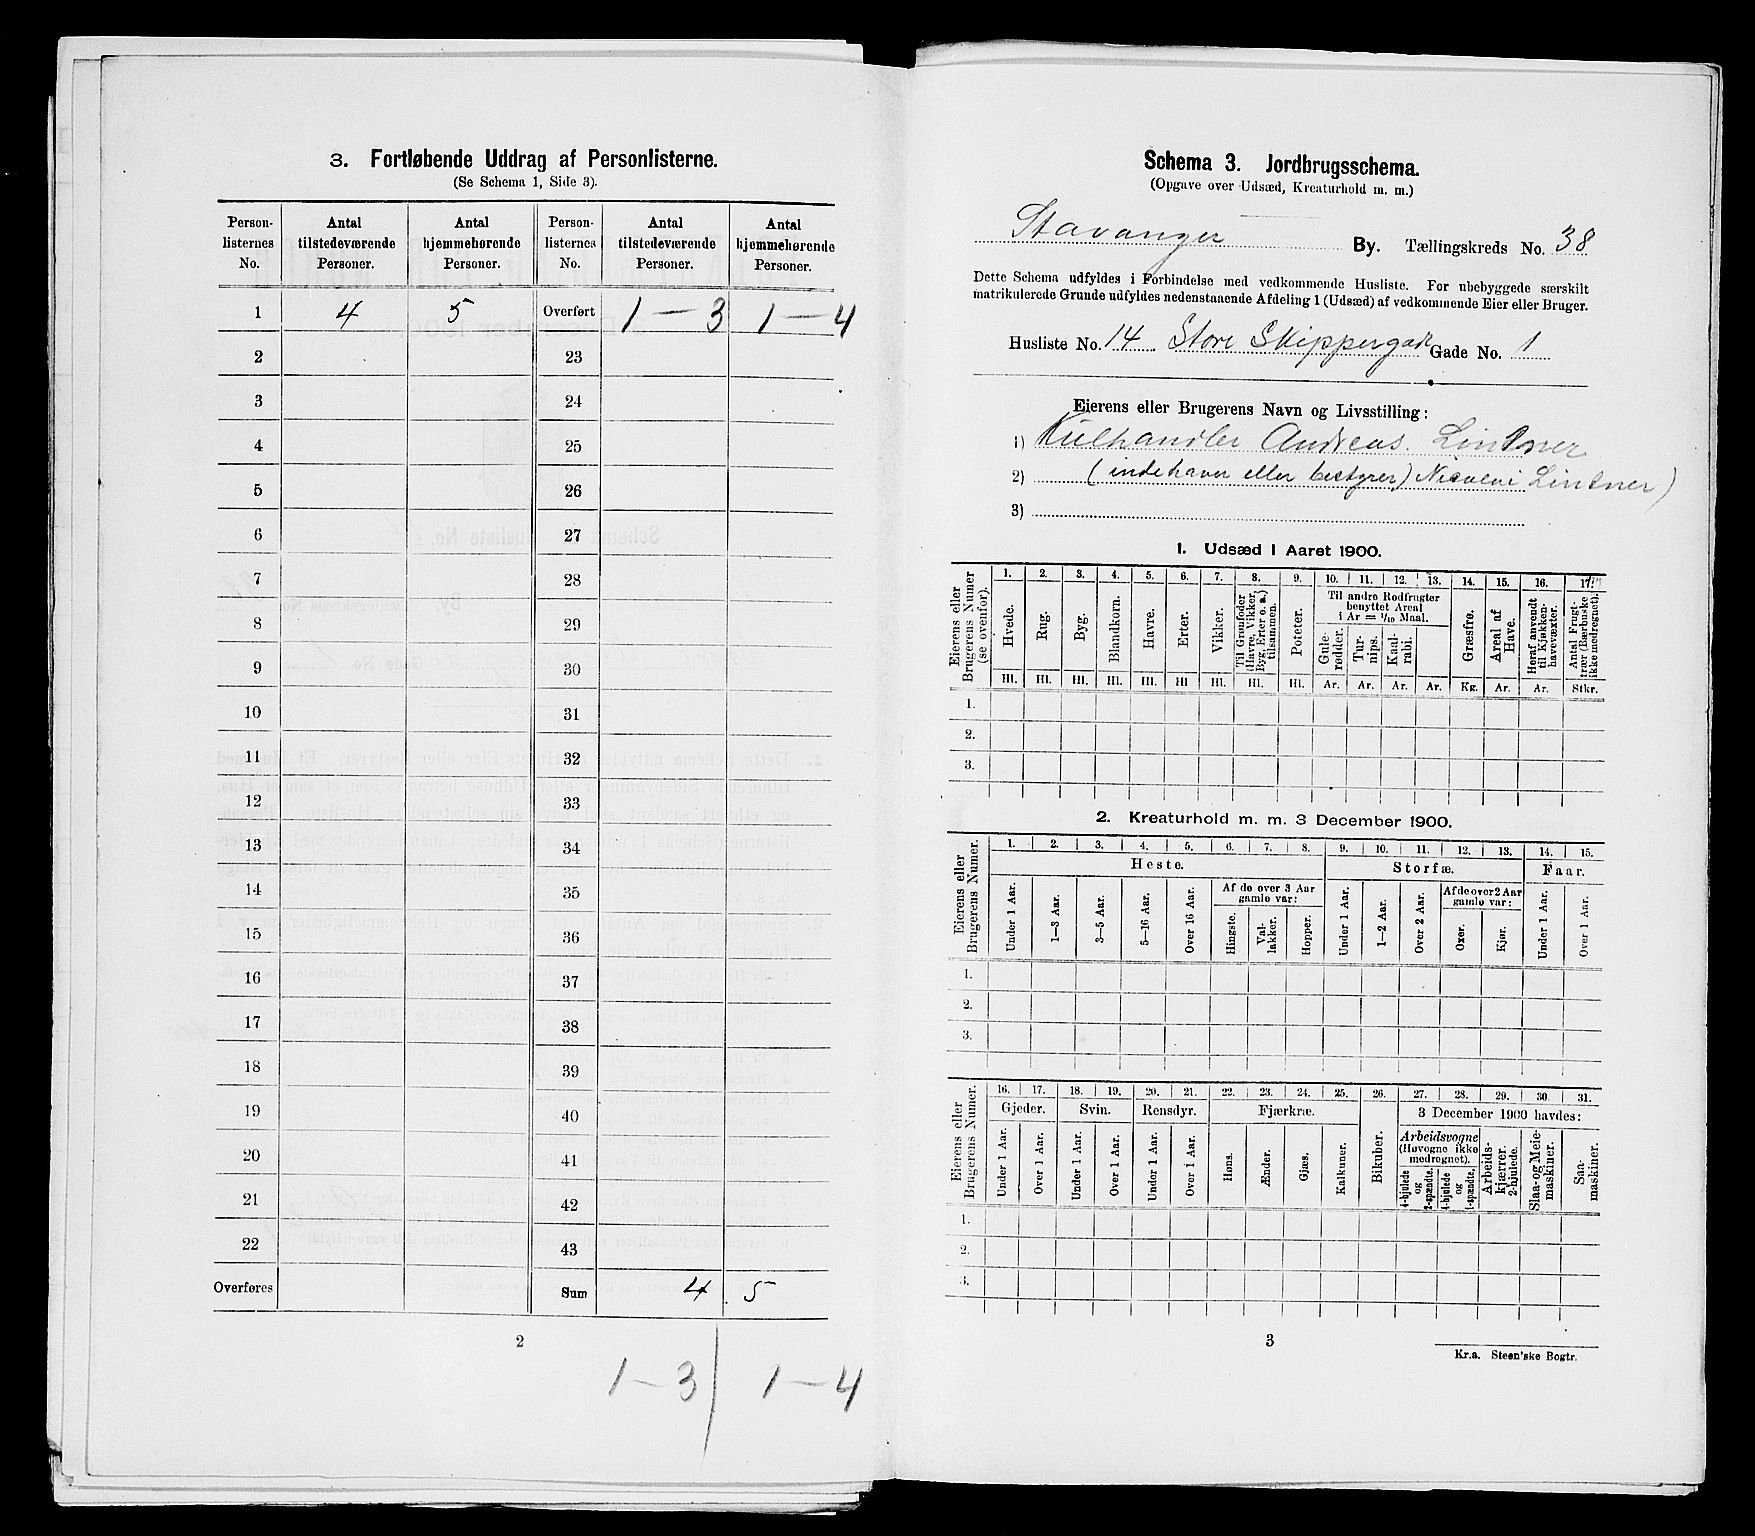 3. Fortløbende Uddrag af Personlisterne.
(Se Schema 1, Side 3).
Person-listernes No. Antal tilstedeværende Personer. Antal hjemmehørende Personer. Person-listernes No. Antal tilstedeværende Personer. Antal hjemmehørende Personer.
1 4 5 Overført 1 — 3 1 — 4
2 23
3 24
4 25
5 26
6 27
7 28
8 29
9 30
10 31
11 32
12 33
13 34
14 35
15 36
16 37
17 38
18 39
19 40
20 41
21 42
22 43
Overføres Sum 4 5
2
1 — 3 1 — 4
Schema 3. Jordbrugsschema.
(Opgave over Udsæd, Kreaturhold m. m.)
Stavanger By. Tællingskreds No. 38
Dette Schema udfyldes i Forbindelse med vedkommende Husliste. For ubebyggede særskilt
matrikulerede Grunde udfyldes nedenstaaende Afdeling 1 (Udsæd) af vedkommende Eier eller Bruger.
Husliste No. 14 Store Skippergade Gade No. 1
Eierens eller Brugerens Navn og Livsstilling:
1) Kulhandler Andreas Lintner
2) (indehaver eller bestyrer) Lintner)
3)
1. Udsæd i Aaret 1900.
Eierens eller Brugerens Numer (se ovenfor).
1. 2. 3. 4. 5. 6. 7. 8. 9. 10. 11. 12. 13. 14. 15. 16. 17.
Til andre Rodfrugter benyttet Areal i Ar = 1/10 Maal.
Hvede. Rug. Byg. Blandkorn. Havre. Erter. Vikker. Til Grønfoder (Havre, Vikker, Byg, Erter o. a.) tilsammen. Poteter. Gule-rødder. Tur-nips. Kaal-rabi. Græsfrø. Areal af Have. Heraf anvendt til Kjøkken-havevæxter. Antal Frugt-trær (Bærbuske ikke medregnet).
Hl. Hl. Hl. Hl. Hl. Hl Hl. Hl. Hl. Ar. Ar. Ar. Ar. Kg. Ar. Ar. Stkr.
1.
2.
3.
2. Kreaturhold m. m. 3 December 1900.
Eierens eller Brugerens Numer.
1. 2. 3. 4. 5. 6. 7. 8. 9. 10. 11. 12. 13. 14. 15.
Heste. Storfæ. Faar.
Af de over 3 Aar gamle var: Af de over 2 Aar gamle var:
Under 1 Aar. 1—3 Aar. 3—5 Aar. 5—16 Aar. Over 16 Aar. Hingste. Val-lakker. Hopper. Under 1 Aar. 1—2 Aar. Over 2 Aar. Oxer. Kjør. Under 1 Aar. Over 1 Aar.
1.
2.
3.
Eierens eller Brugerens Numer.
16. 17. 18. 19. 20. 21. 22. 23. 24. 25. 26. 27. 28. 29. 30. 31.
Gjeder. Svin. Rensdyr. Fjærkræ. 3 December 1900 havdes:
Arbeidsvogne (Høvogne ikke medregnet).
Under 1 Aar. Over 1 Aar. Under 1 Aar. Over 1 Aar. Under 1 Aar. Over 1 Aar. Høns. Ænder. Gjæs. Kalkuner. Bikuber. 4-hjulede og 2-spændte. 4-hjulede og 1-spændte. Arbeids-kjærrer. 2-hjulede. Slaa- og Meie-maskiner. Saa-maskiner.
1.
2.
3.
3
Kr.a. Steen'ske Bogtr.